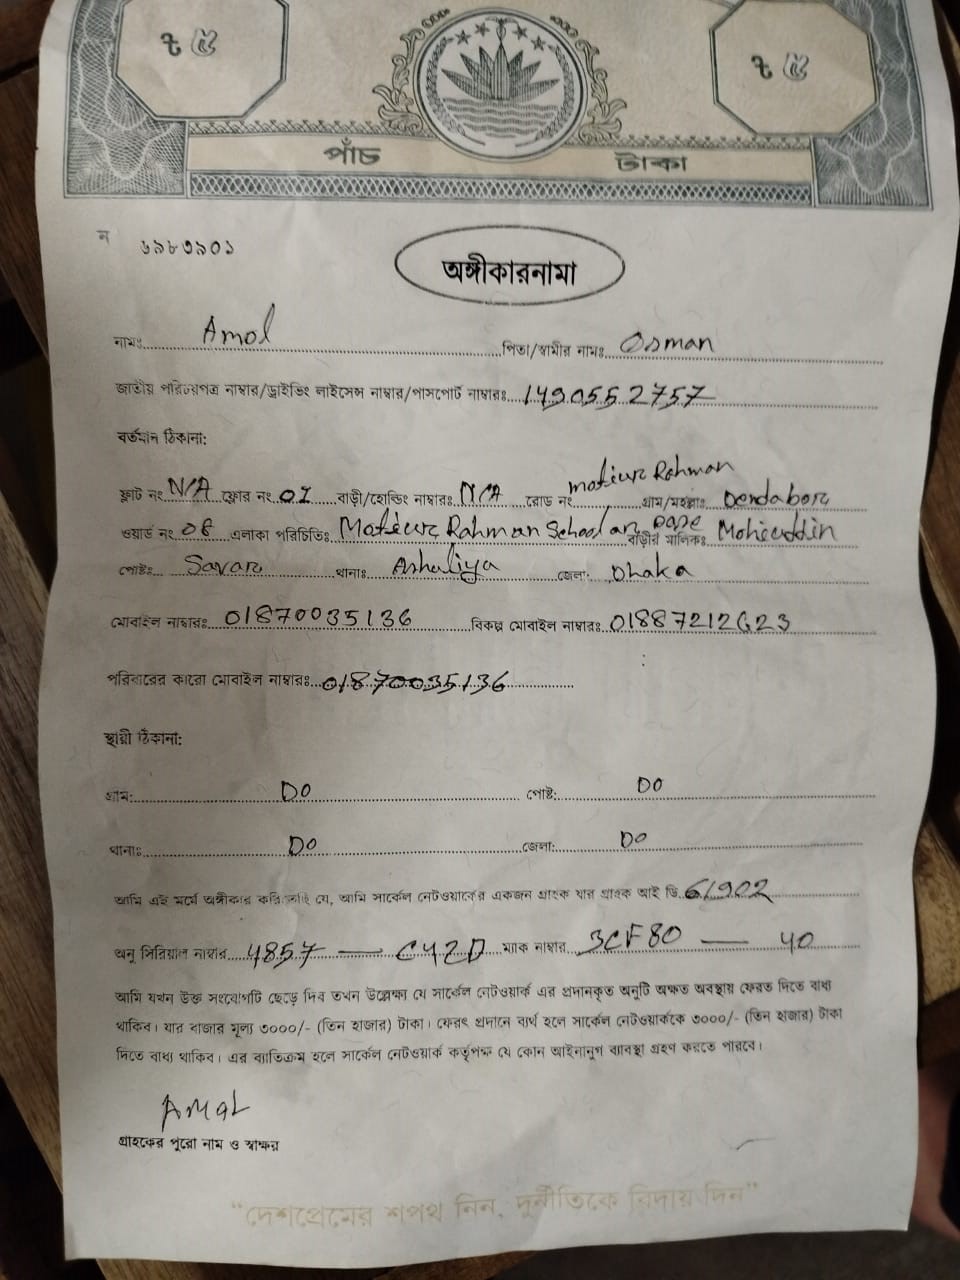 ৳ ৫ ৳ ৫
পাঁচ টাকা
ন ৬৯৮৩৯০১
অঙ্গীকারনামা
নামঃ Amol পিতা/স্বামীর নামঃ Osman
জাতীয় পরিচয়পত্র নাম্বার/ড্রাইভিং লাইসেন্স নাম্বার/পাসপোর্ট নাম্বারঃ 1490552757
বর্তমান ঠিকানা:
ফ্লাট নং N/A ফ্লোর নং 01 বাড়ী/হোল্ডিং নাম্বারঃ N/A রোড নং Motiur Rahman গ্রাম/মহল্লাঃ Dendabor
ওয়ার্ড নং 06 এলাকা পরিচিতিঃ Motiur Rahman School বাড়ীর মালিকঃ Mohiuddin
পোষ্টঃ Savar থানাঃ Ashuliya জেলা: Dhaka
মোবাইল নাম্বারঃ 01870035136 বিকল্প মোবাইল নাম্বারঃ 01887212623
পরিবারের কারো মোবাইল নাম্বারঃ 01870035136
স্থায়ী ঠিকানা:
গ্রাম: DO পোষ্ট: DO
থানাঃ DO জেলা: DO
আমি এই মর্মে অঙ্গীকার করিতেছি যে, আমি সার্কেল নেটওয়ার্কের একজন গ্রাহক যার গ্রাহক আই ডি 61902
অনু সিরিয়াল নাম্বার 4857 — C42D ম্যাক নাম্বার 3CF80 — 40
আমি যখন উক্ত সংযোগটি ছেড়ে দিব তখন উল্লেক্ষা যে সার্কেল নেটওয়ার্ক এর প্রদানকৃত অনুটি অক্ষত অবস্থায় ফেরত দিতে বাধ্য
থাকিব। যার বাজার মূল্য ৩০০০/- (তিন হাজার) টাকা। ফেরৎ প্রদানে ব্যর্থ হলে সার্কেল নেটওয়ার্ককে ৩০০০/- (তিন হাজার) টাকা
দিতে বাধ্য থাকিব। এর ব্যাতিক্রম হলে সার্কেল নেটওয়ার্ক কর্তৃপক্ষ যে কোন আইনানুগ ব্যাবস্থা গ্রহণ করতে পারবে।
AMOL
গ্রাহকের পুরো নাম ও স্বাক্ষর
“দেশপ্রেমের শপথ নিন, দুর্নীতিকে বিদায় দিন”